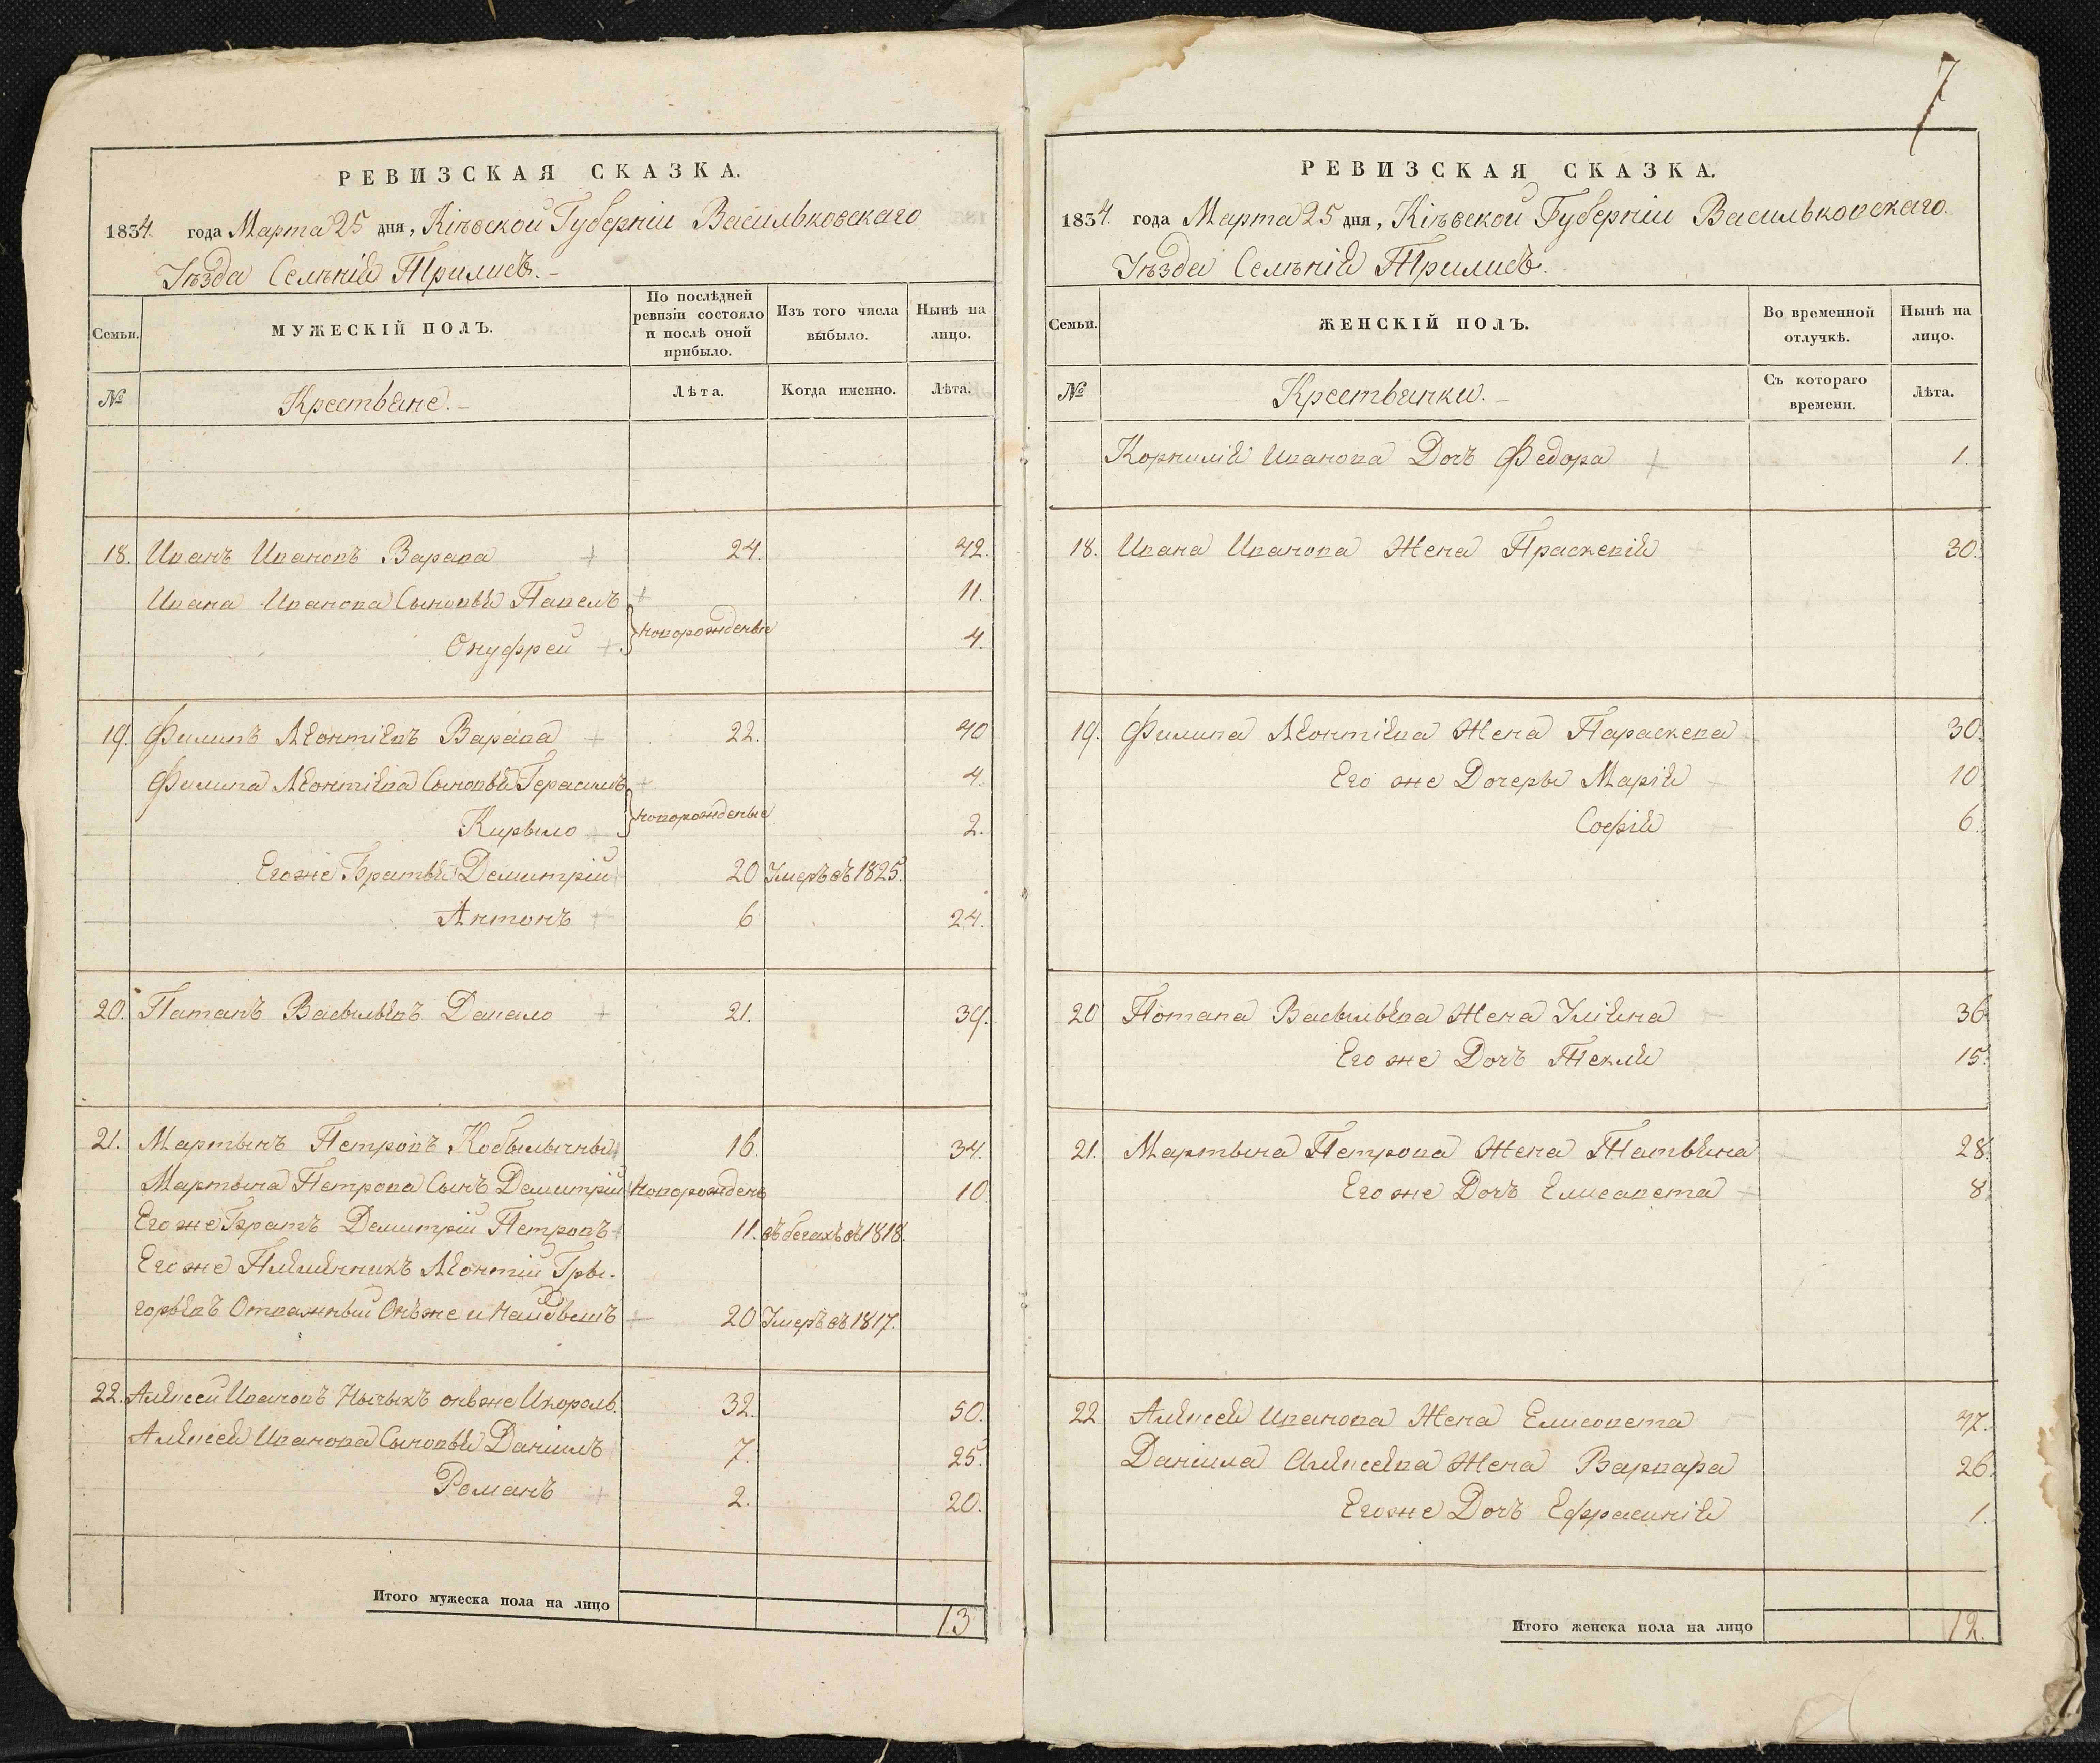 РЕВИЗСКАЯ СКАЗКА.
1834. года Марта 25 дня, Кіевской Губерніи Васильковскаго
Уѣзда Селѣнія Трилисъ.
Семьи.
МУЖЕСКІЙ ПОЛЪ.
По послѣдней ревизіи состояло и послѣ оной прибыло.
Изъ того числа выбыло.
Нынѣ на лицо.
№
Крестьяне.
Лѣта.
Когда именно.
Лѣта.
18. Иванъ Ивановъ Варава 24. 42.
Ивана Иванова Сыновья Павелъ 11.
новорожденые
Онуфрей 4.
19. Филипъ Леонтіевъ Варава 22. 40
Филипа Леонтіева Сыновья Герасимъ 4.
новорожденые
Кирыло 2.
Его же Братья Демитрій 20 Умеръ въ 1825.
Антонъ 6 24.
20. Патапъ Васыльевъ 21. 39.
21. Мартынъ Петровъ 16. 34.
Мартына Петрова Сынъ Демитрій новорожденъ 10
Его же Братъ Демитрій Петровъ 11. въ бегахъ съ 1818.
Его же Племенникъ Леонтій Гры-
горьевъ Отважный Онъ же и 20 Умеръ въ 1817.
22. Алексей Ивановъ онъ же 32. 50.
Алексея Иванова Сыновья Даніилъ 7. 25.
Романъ 2. 20.
Итого мужеска пола на лицо 13
7
РЕВИЗСКАЯ СКАЗКА.
1834. года Марта 25 дня, Кіевской Губерніи Васильковскаго
Уѣзда Селѣнія Трилисъ.
Семьи.
ЖЕНСКІЙ ПОЛЪ.
Во временной отлучкѣ.
Нынѣ на лицо.
№
Крестьянки.
Съ котораго времени.
Лѣта.
Корнилія Иванова Дочь Федора 1.
18. Ивана Иванова Жена Праскевія 30.
19. Филипа Леонтіева Жена Параскева 30.
Его же Дочеры Марія 10
Софія 6.
20 Потапа Васыльева Жена Уліяна 36
Его же Дочъ Текля 15.
21. Мартына Петрова Жена Татьяна 28.
Его же Дочъ Елисавета 8
22 Алексея Иванова Жена Елисовета 47.
Даніила Алексеева Жена Варвара 26.
Его же Дочъ Ефрасинія 1.
Итого женска пола на лицо 12.